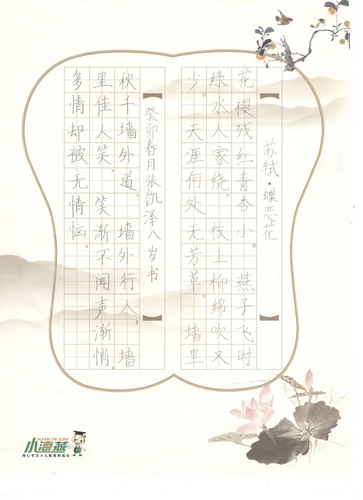 苏轼·蝶恋花
花褪残红青杏小。燕子飞时
绿水人家绕。枝上柳绵吹又
少。天涯何处无芳草。墙里
癸卯春月张凯泽八岁书
秋千墙外道。墙外行人,墙
里佳人笑。笑渐不闻声渐悄。
多情却被无情恼。
小海燕
XHYJY.CN